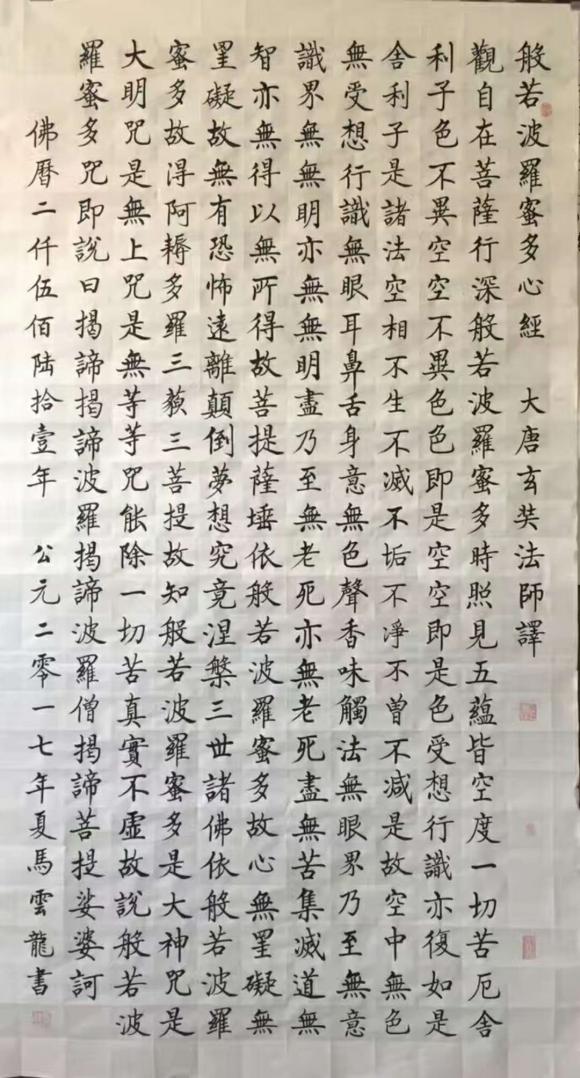 般若波羅蜜多心經　大唐玄奘法師譯
觀自在菩薩行深般若波羅蜜多時照見五蘊皆空度一切苦厄舍
利子色不異空空不異色色即是空空即是色受想行識亦復如是
舍利子是諸法空相不生不滅不垢不淨不曾不减是故空中無色
無受想行識無眼耳鼻舌身意無色聲香味觸法無眼界乃至無意
識界無無明亦無無明盡乃至無老死亦無老死盡無苦集滅道無
智亦無得以無所得故菩提薩埵依般若波羅蜜多故心無罣礙無
罣礙故無有恐怖遠離顛倒夢想究竟涅槃三世諸佛依般若波羅
蜜多故得阿耨多羅三藐三菩提故知般若波羅蜜多是大神咒是
大明咒是無上咒是無等等咒能除一切苦真實不虛故說般若波
羅蜜多咒即說曰揭諦揭諦波羅揭諦波羅僧揭諦菩提娑婆訶
佛曆二仟伍佰陸拾壹年　公元二零一七年夏馬雲龍書